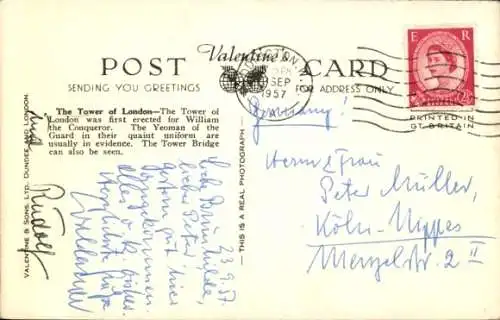 Valentine's
POST CARD
SENDING YOU GREETINGS
FOR ADDRESS ONLY
SEP
1957
E R
PRINTED IN
GT. BRITAIN
The Tower of London—The Tower of
London was first erected for William
the Conqueror. The Yeoman of the
Guard in their quaint uniform are
usually in evidence. The Tower Bridge
can also be seen.
VALENTINE & SONS, LTD. DUNDEE AND LONDON.
—THIS IS A REAL PHOTOGRAPH—
23.9.57.
Liebe Brunhilde,
lieber Peter!
gestern gut hier
angekommen.
alles
Herzlichste Grüße
und Rudolf
Germany!
Herrn & Frau
Peter Müller,
Köln-Nippes
Menzelstr. 2 II